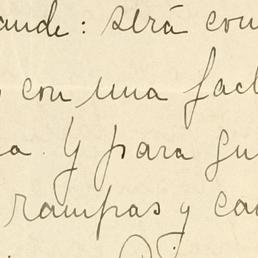 ande: será con
con una fach
a. Y para gu
rampas y ca